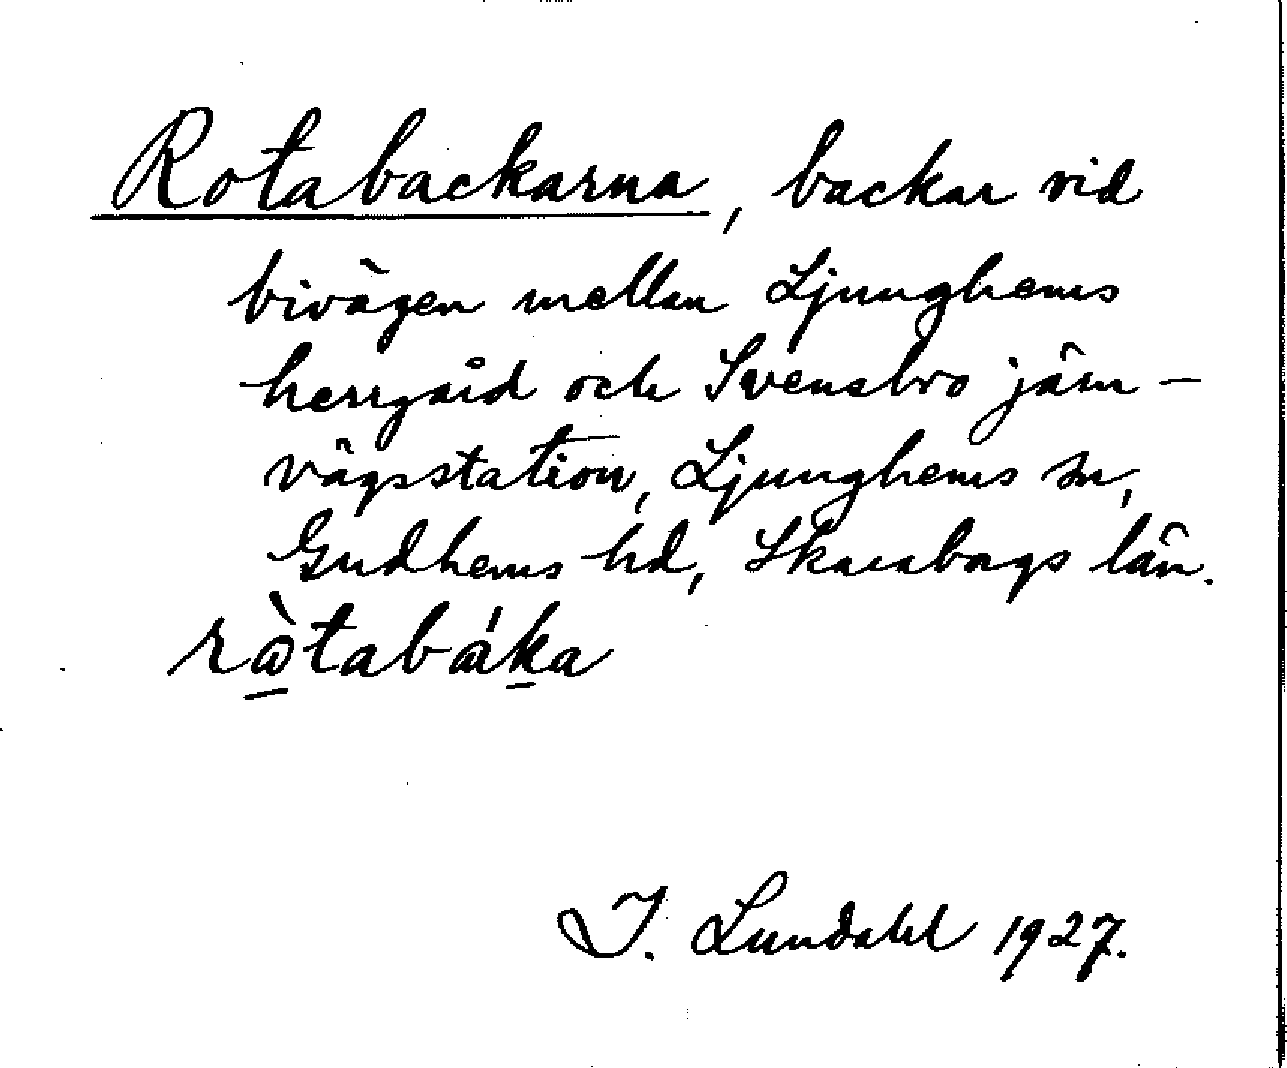 Rotabackarna, backar vid
bivägen mellan Ljunghems
herrgård och Svensbro järn-
vägsstation, Ljunghems sn,
Gudhems hd, Skaraborgs län.
I. Lundahl 1927.